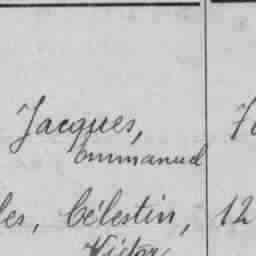 Jacques,
Emmanuel
les, Célestin, 12
Victor